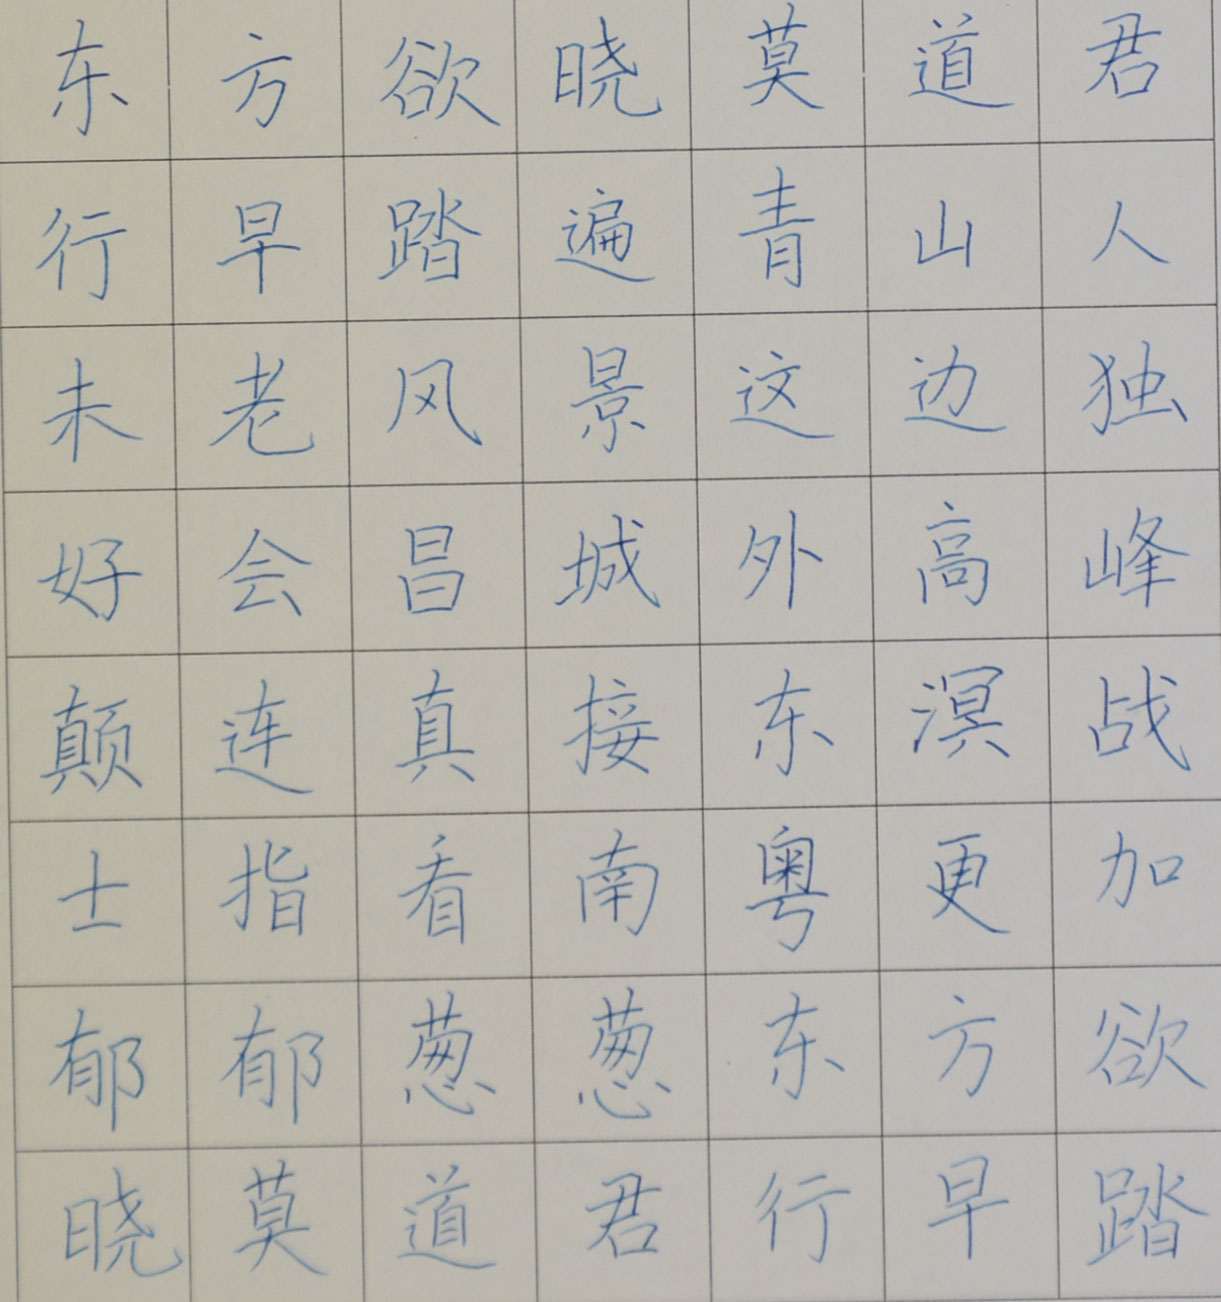 东方欲晓莫道君
行早踏遍青山人
未老风景这边独
好会昌城外高峰
颠连真接东溟战
士指看南粤更加
郁郁葱葱东方欲
晓莫道君行早踏